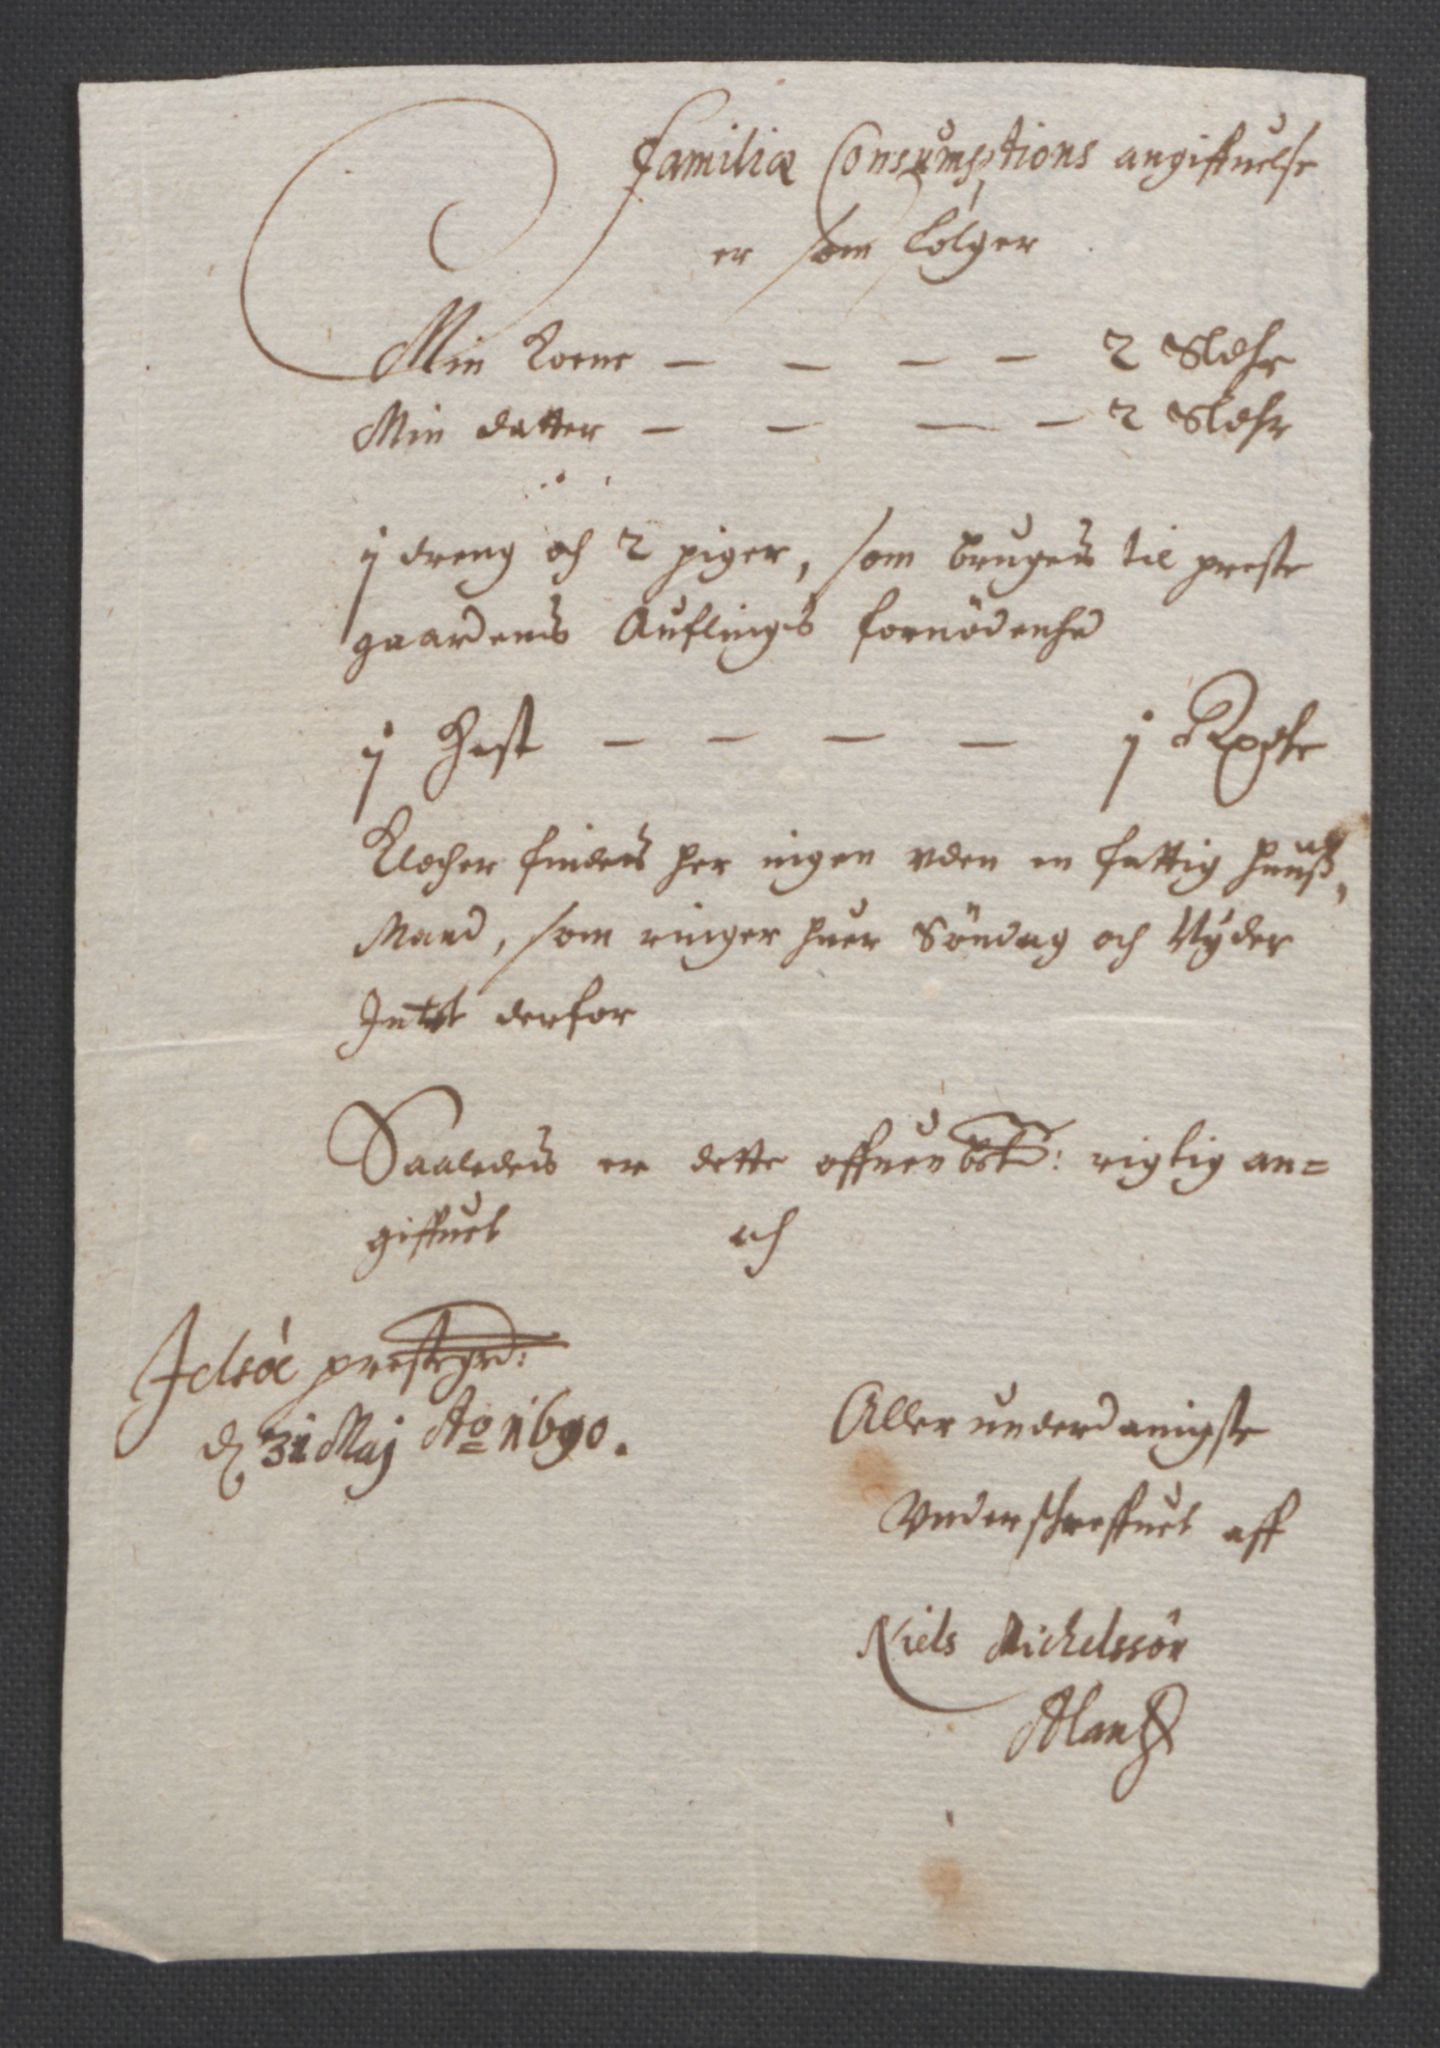 Familiæ Consumptions angiffuelse
er som følger
Min Kone — — — — 2 Sldhr
Min datter — — — — 2 Sldhr
j dreng och 2 piger, som brugeis til preste
gaardens Auflings fornødenhd
j Hest — — — — j Rxdlr
Klocher findeis her ingen vden en fattig huuß,
Mand, som ringer huer Söndag och Nyder
Intet derfor
Saaledeis er dette offuenbet: rigtig an=
giffuet
Jelsöe prestegrd:
d 31 Maj Ao 1690.
Allerunderdanigste
Vnderschreffuet aff
Niels Michelssön